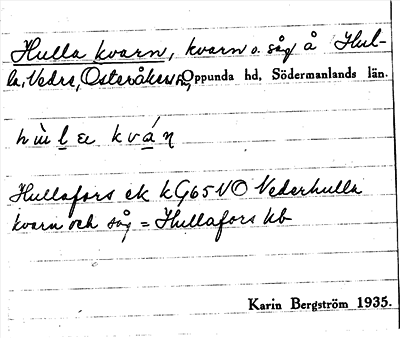 Hulla kvarn, kvarn o. såg å Hul-
la, Vedre, Österåkers sn, Oppunda hd, Södermanlands län.
Hullafors ek kG65 NO Vederhulla
kvarn och såg = Hullafors kb
Karin Bergström 1935.